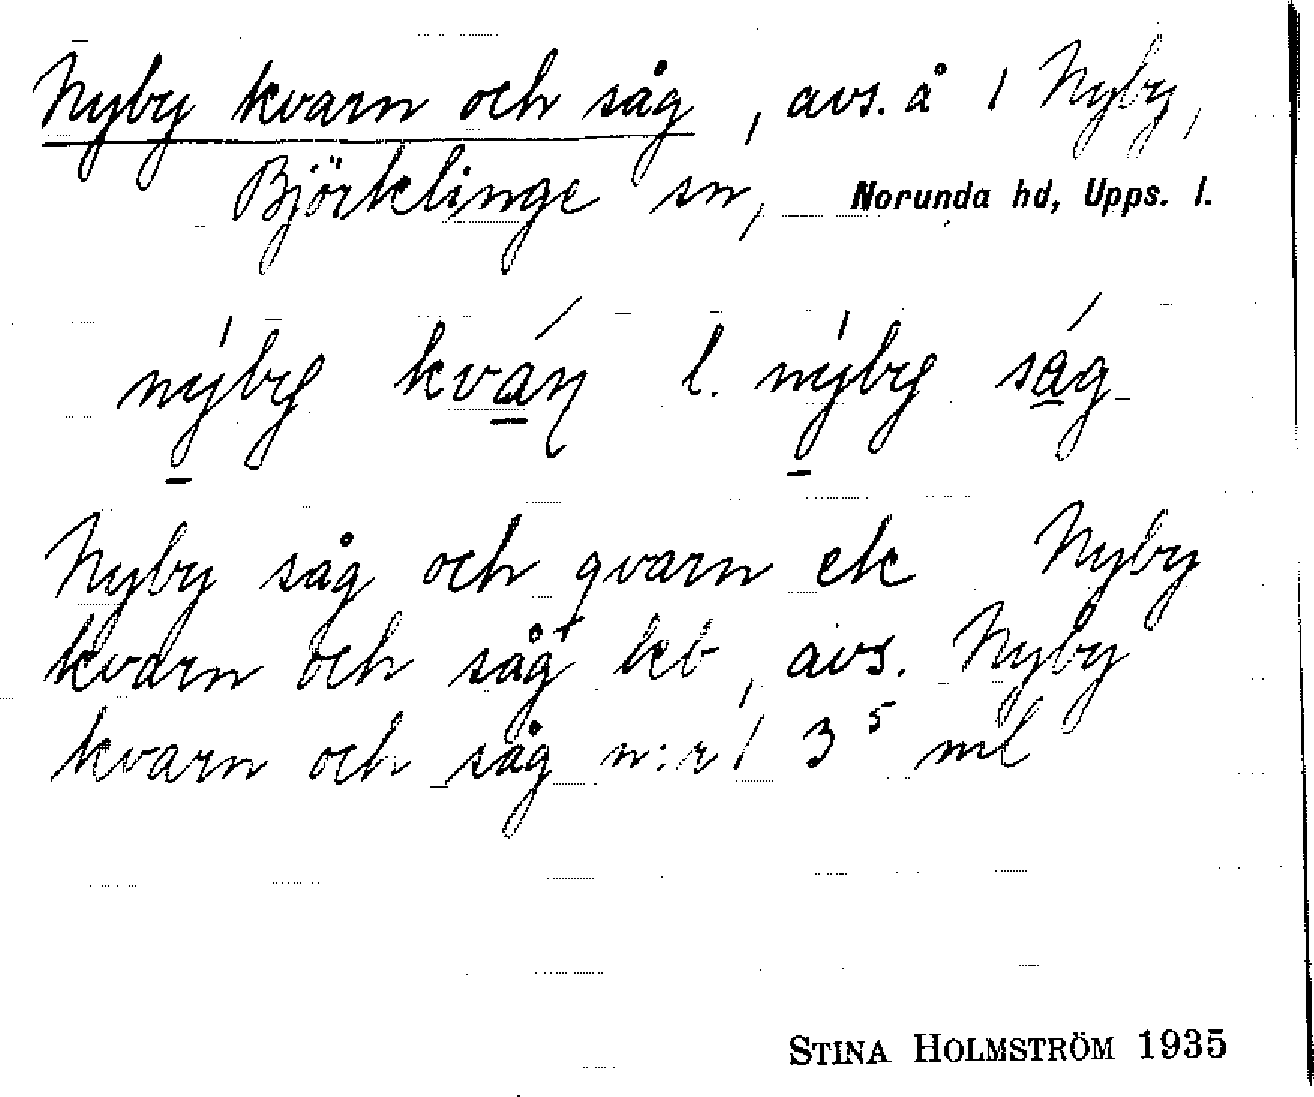 Nyby kvarn och såg, avs. å 1 Nyby,
Björklinge sn, Norunda hd, Upps. l.
nýby kván l. nýby ság
Nyby såg och qvarn ek Nyby
kvarn och såg + kb, avs. Nyby
kvarn och såg n:r 1 3⁵ ml
STINA HOLMSTRÖM 1935